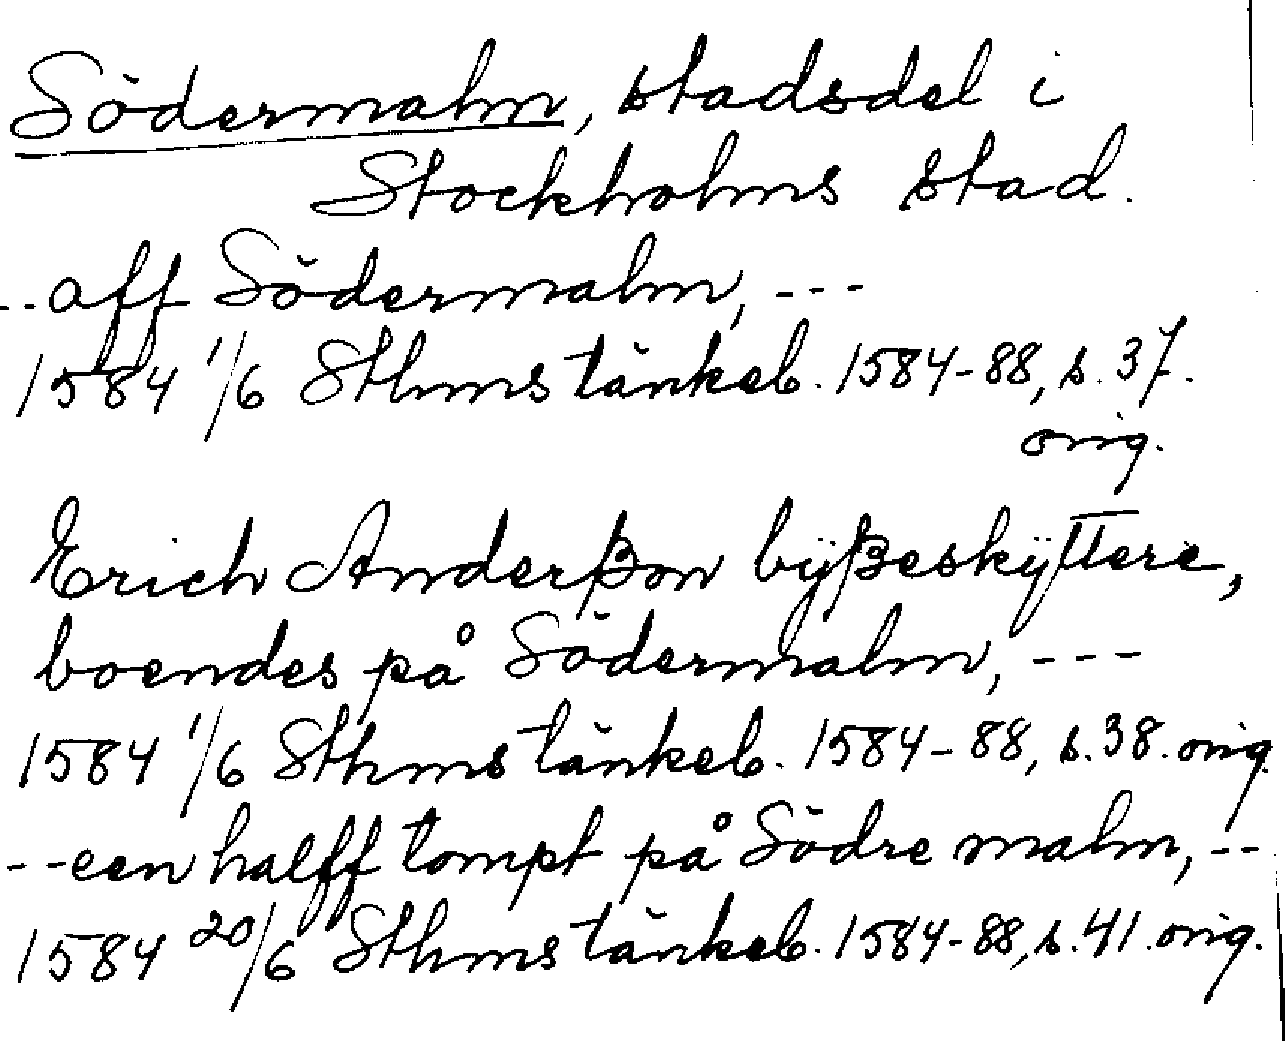 Södermalm, stadsdel i
Stockholms stad.
--aff Södermalm, ---
1584 1/6 Sthms tänkeb. 1584-88, s. 37.
orig.
Erich Anderßon byßeskÿttere,
boendes på Södermalm, ---
1584 1/6 Sthms tänkeb. 1584-88, s. 38. orig.
--een halff tompt på Södre malm, --
1584 20/6 Sthms tänkeb. 1584-88, s. 41. orig.